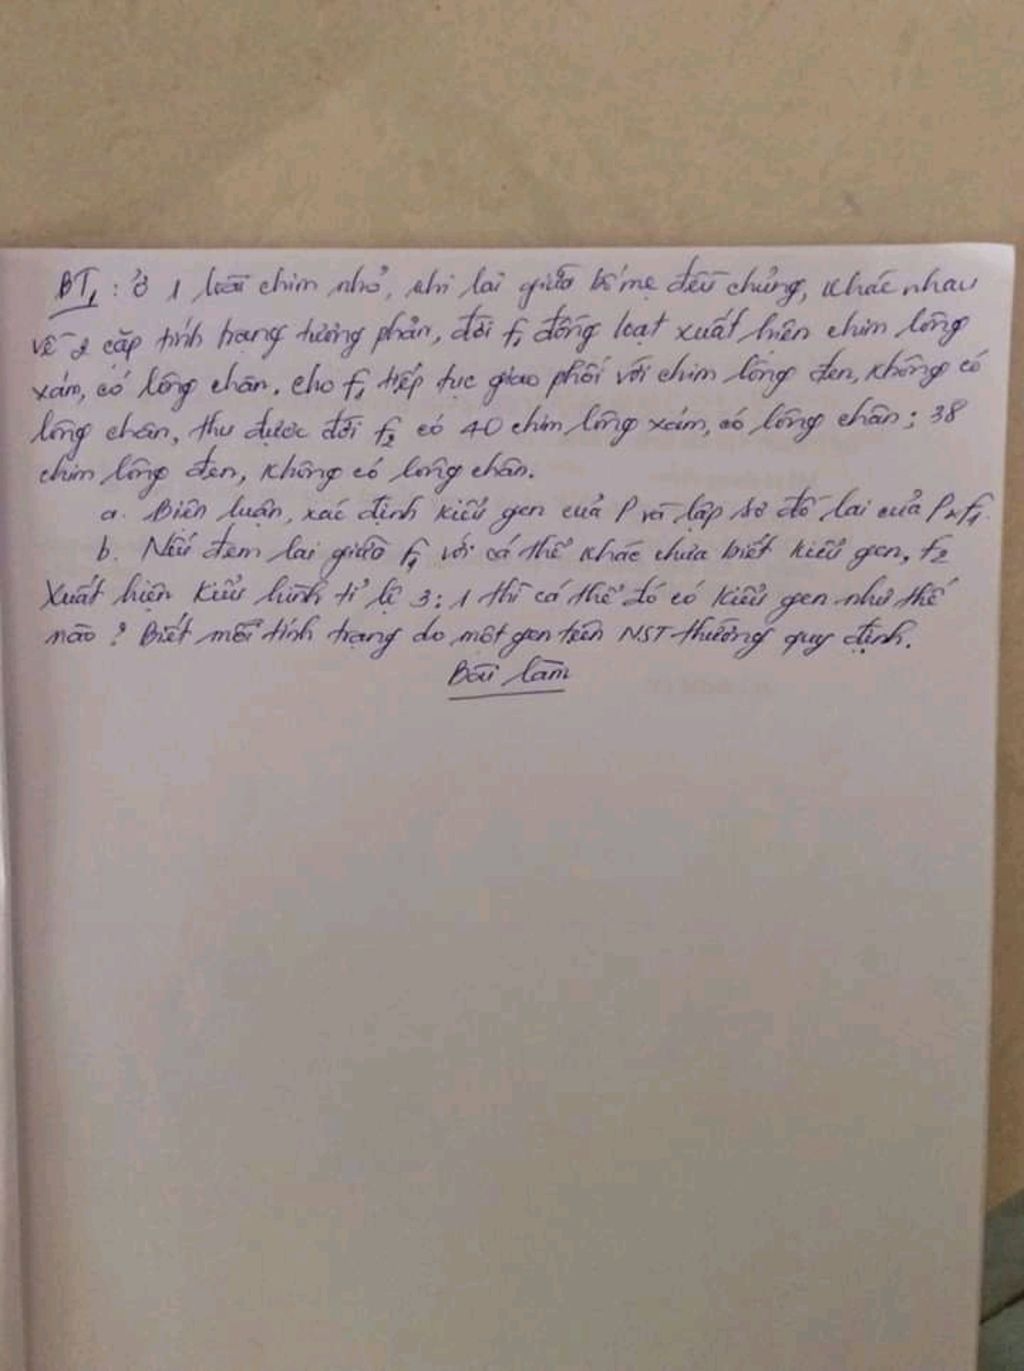 BT1: Ở 1 loài chim nhỏ, khi lai giữa bố mẹ đều chủng, khác nhau
về 2 cặp tính trạng tương phản, đời F1 đồng loạt xuất hiện chim lông
xám, có lông chân. Cho F1 tiếp tục giao phối với chim lông đen, không có
lông chân, thu được đời F2 có 40 chim lông xám, có lông chân; 38
chim lông đen, không có lông chân.
a. Biện luận, xác định kiểu gen của P và lập sơ đồ lai của P→F1.
b. Nếu đem lai giữa F1 với cá thể khác chưa biết kiểu gen, F2
xuất hiện kiểu hình tỉ lệ 3:1 thì cá thể đó có kiểu gen như thế
nào? Biết mỗi tính trạng do một gen trên NST thường quy định.
Bài làm